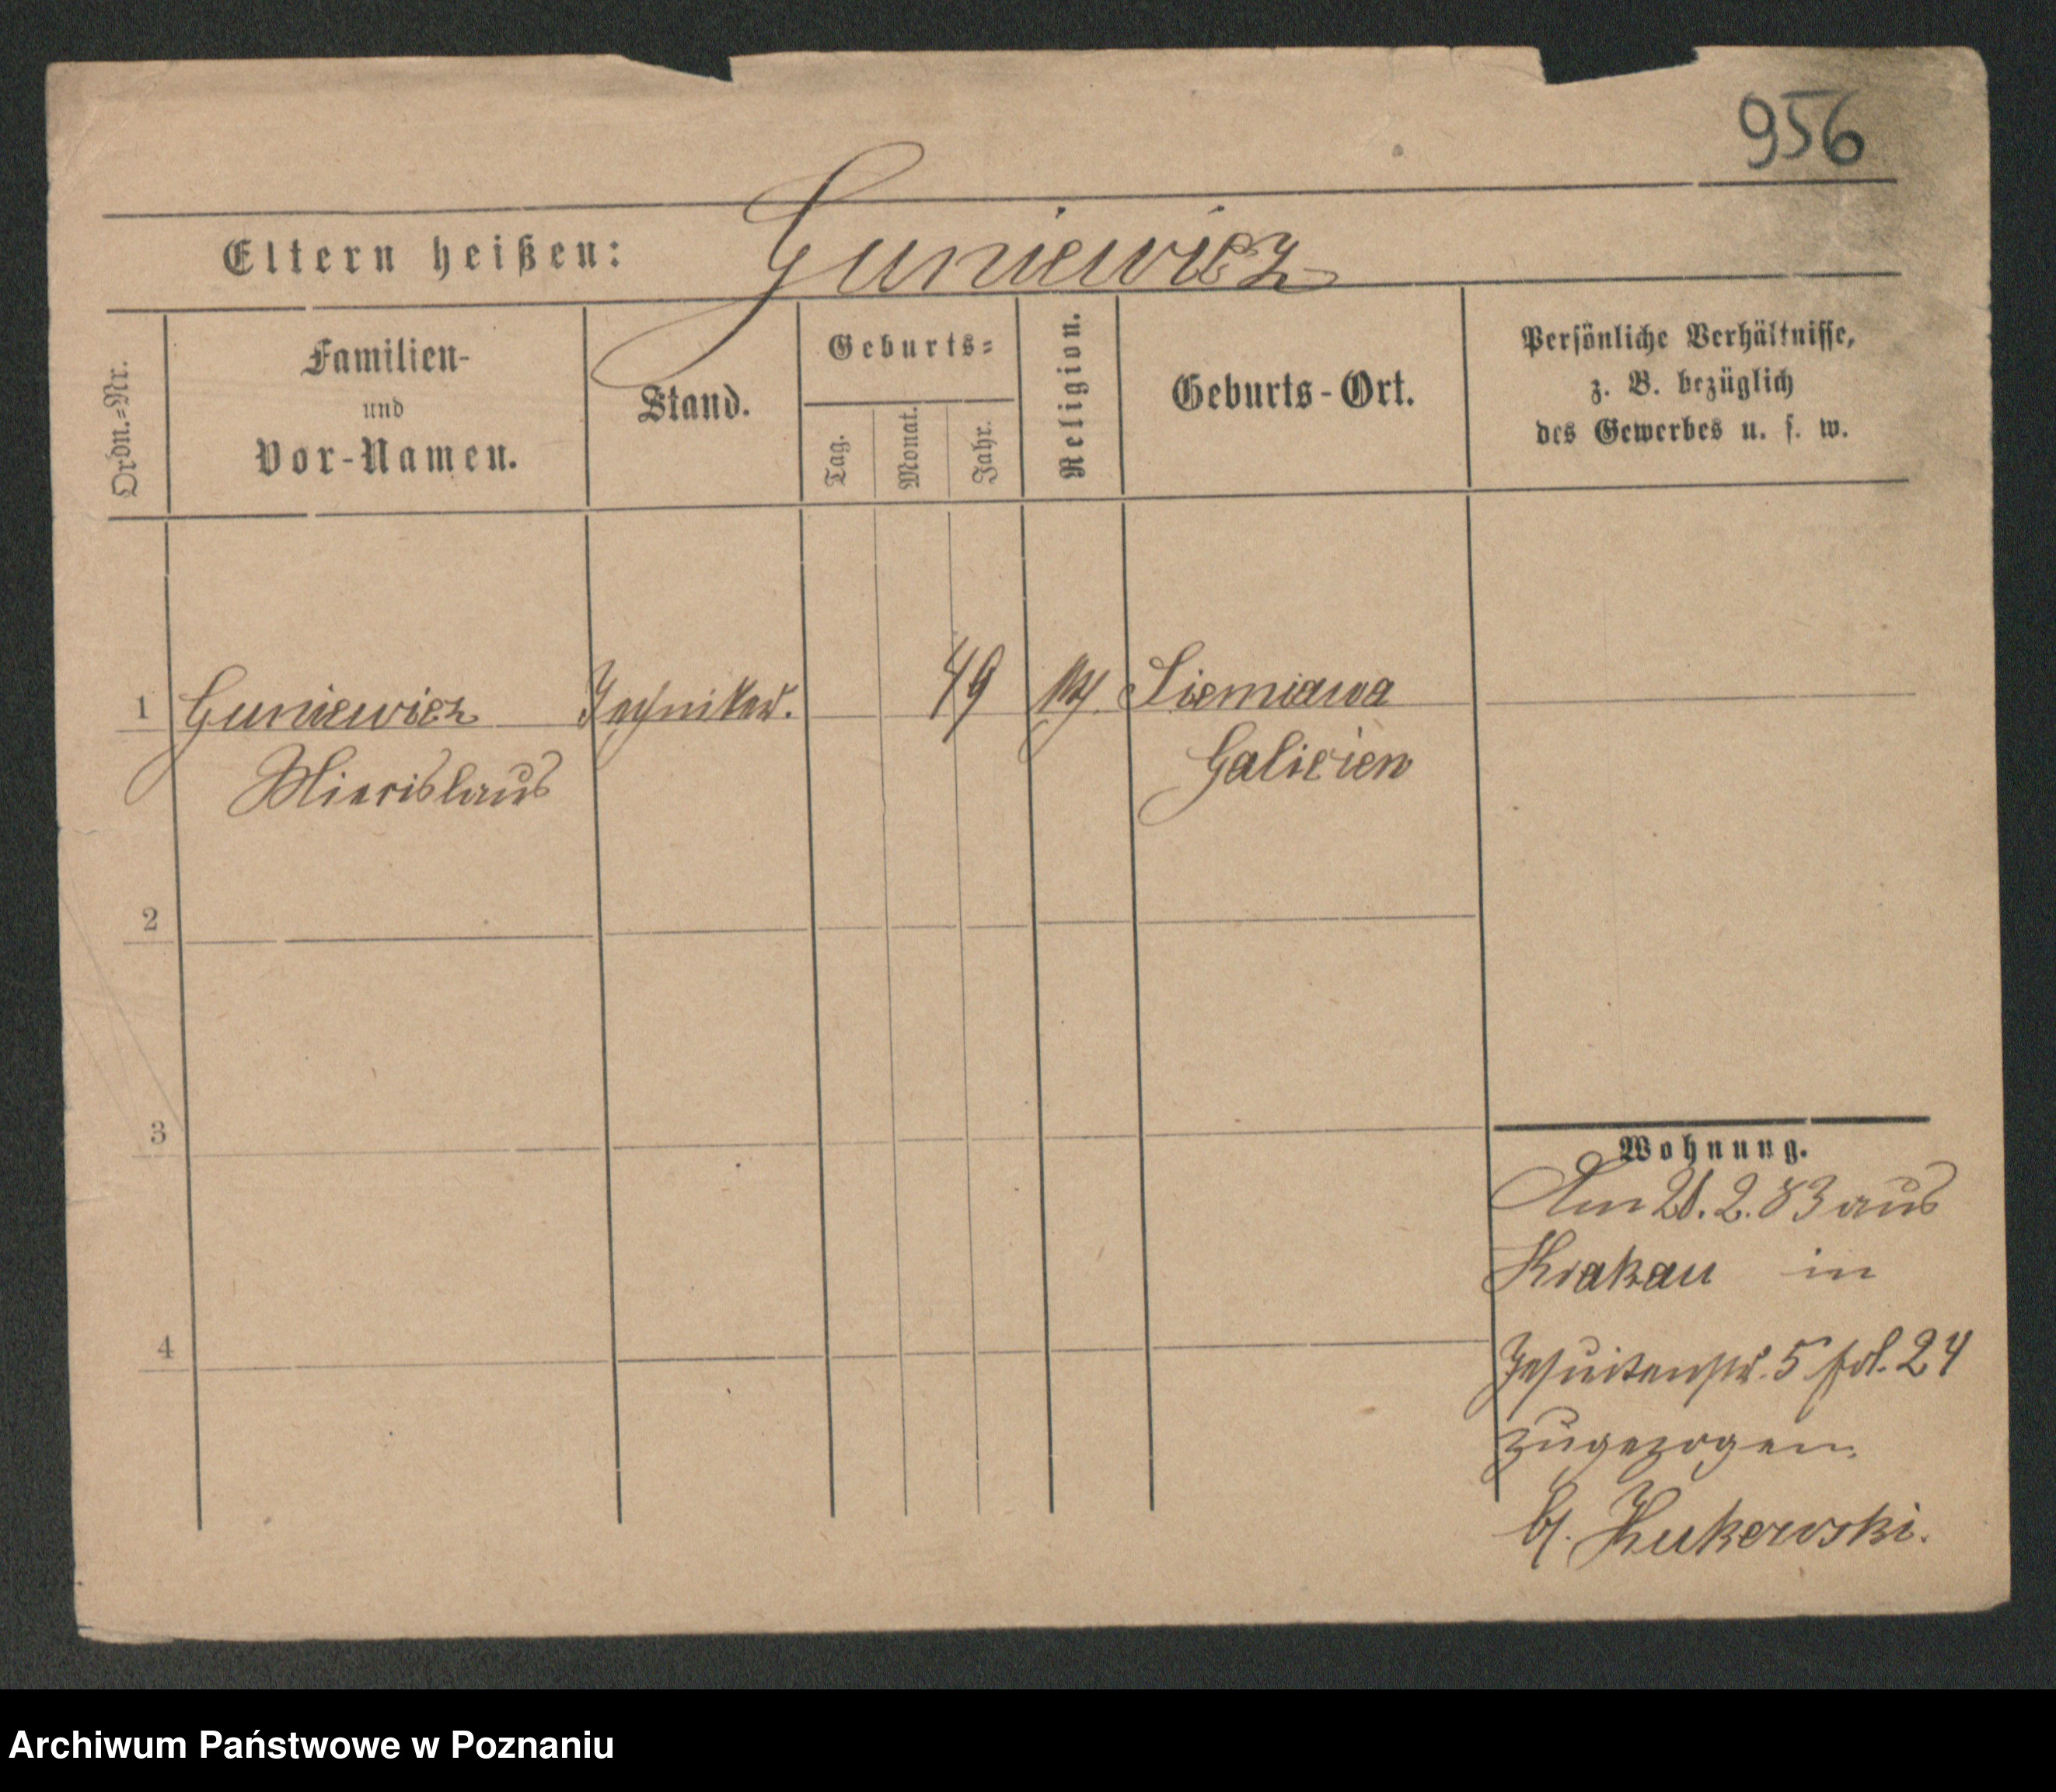 956
Eltern heißen: Guniewicz
Ordn.=Nr.
Familien-
und
Vor-Namen.
Stand.
Geburts=
Tag.
Monat.
Jahr.
Religion.
Geburts-Ort.
Persönliche Verhältnisse,
z. B. bezüglich
des Gewerbes u. s. w.
1 Guniewicz Techniker. 49 Sieniawa
Miecislaus Galicien
2
3
4
Wohnung.
Am 2.83 aus
Krakau in
Jesuitenstr. 5 fol. 24
zugezogen.
b/. Kukowski.
Archiwum Państwowe w Poznaniu